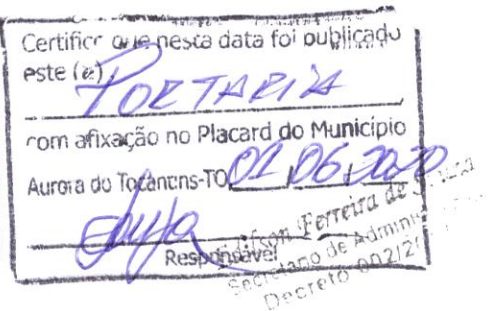 Certifico que nesta data foi publicado
este (a) PORTARIA
com afixação no Placard do Município
Aurora do Tocantins-TO 01 06 2020
Responsável
Ferreira de
Secretario de Adminis
Decreto 002/2